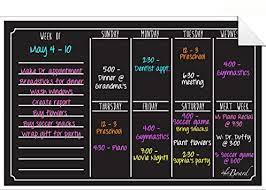 WEEK OF
May 4 - 10
Make Dr. appointment
Breadsticks for dinner
Wash windows
Create report
Buy flowers
Buy Soccer snacks
Wrap gift for party
SUNDAY
5:00 -
Dinner @
Grandma's
MONDAY
2:30 -
Dentist appt.
TUESDAY
12 - 3
Preschool
6:00 -
meeting
WEDNESDAY
4:00 -
Gymnastics
THURSDAY
4:30 - Piano
FRIDAY
4:00 -
Gymnastics
7:00 -
Movie Night!
SATURDAY
Soccer game
Bring Snacks
2:00 -
Sophia's party
NEXT WEEK
M 12 - 3
Preschool
W Dr. Duffy
@ 3:00
S Soccer game
@ 3:00